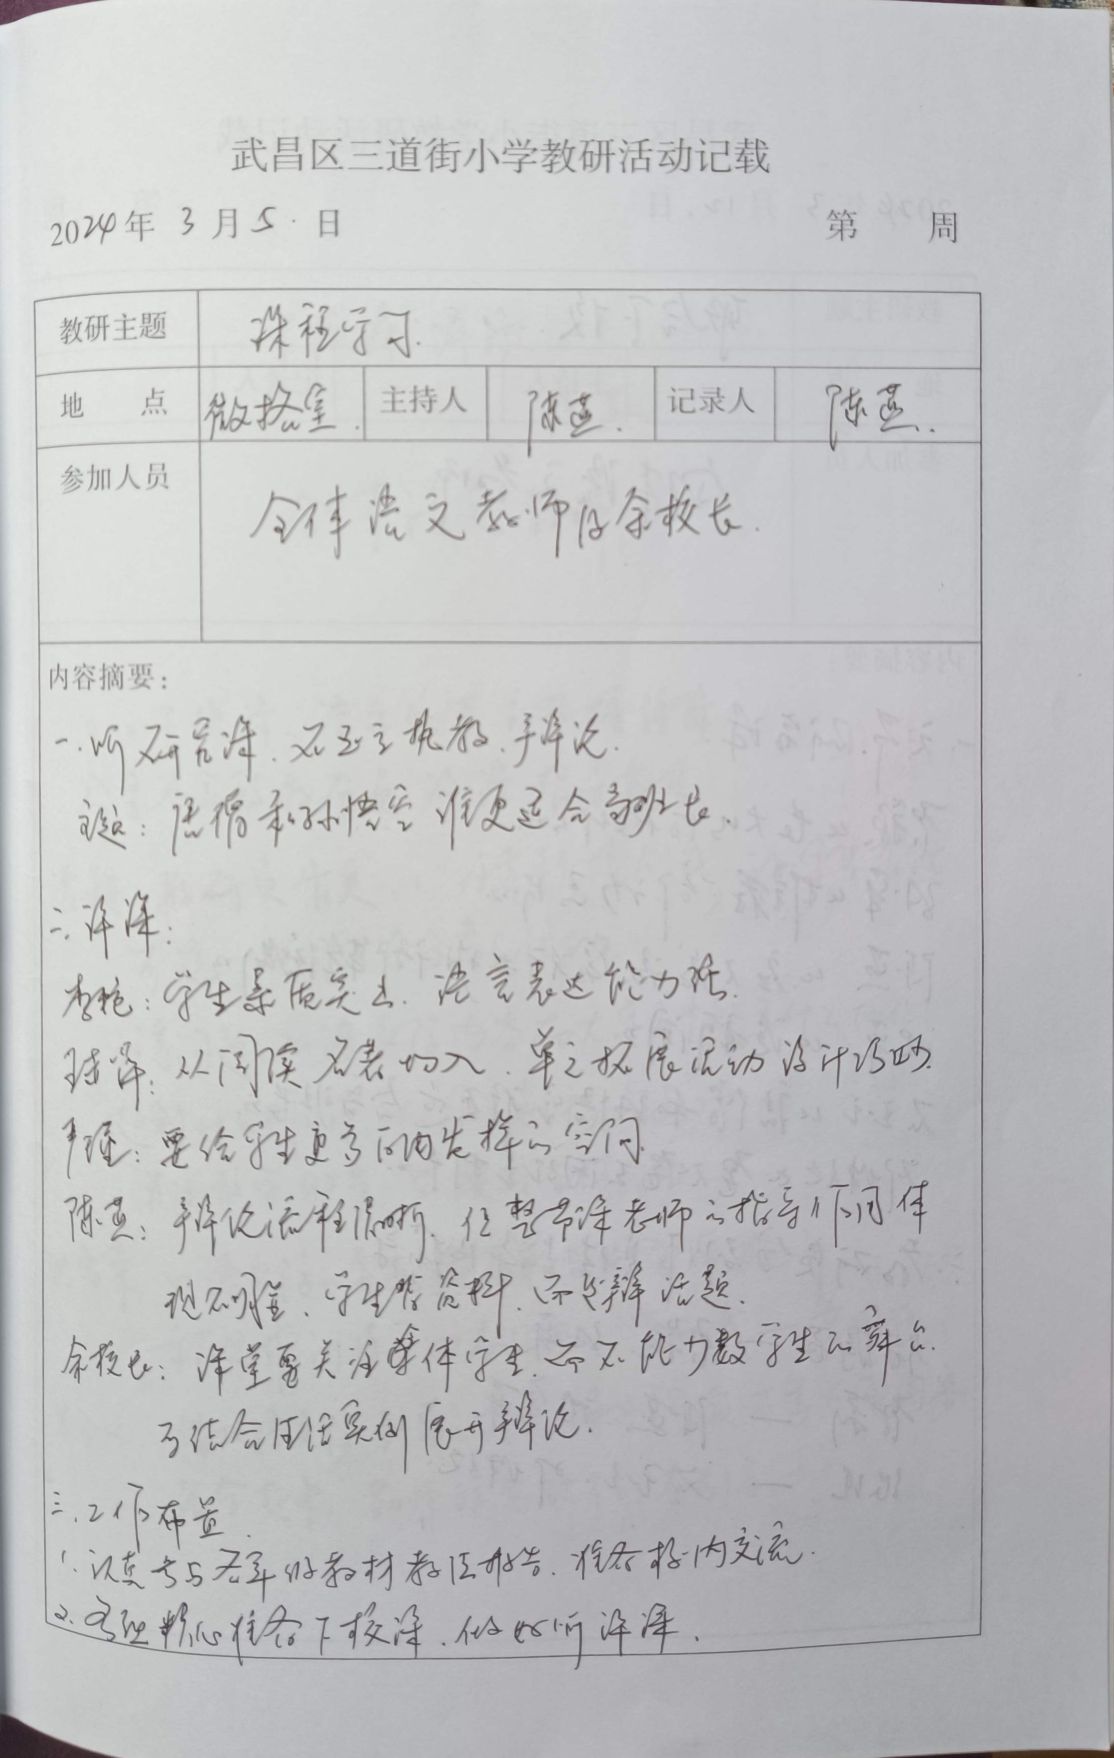 武昌区三道街小学教研活动记载
2024年 3 月 5 日 第 周
教研主题 课程学习.
地 点 微格室. 主持人 陈燕. 记录人 陈燕.
参加人员 全体语文教师及余校长.
内容摘要:
一.听研究课. 执教.辩论.
主题: 唐僧和孙悟空谁更适合当班长.
二.评课:
李艳: 学生素质突出. 语言表达能力强.
从阅读名著切入. 单元拓展活动设计巧妙.
要给学生更多自由发挥的空间.
陈燕: 辩论流程清晰. 但整节课老师的指导作用体
现不明显. 学生背资料. 而非辩话题.
余校长: 课堂要关注集体学生. 而不能少数学生的舞台.
可结合生活实例展开辩论.
三.工作布置.
1.认真参与各年级教材教法报告. 准备校内交流.
2. 精心准备下校课. 做好听评课.